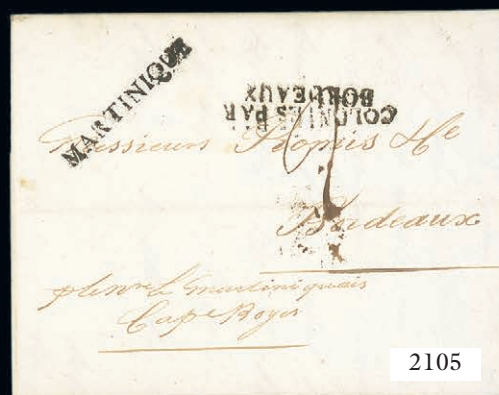 MARTINIQUE
COLONIES PAR
BORDEAUX
Messieurs
Bordeaux
martiniquais
Cape Royer
2105